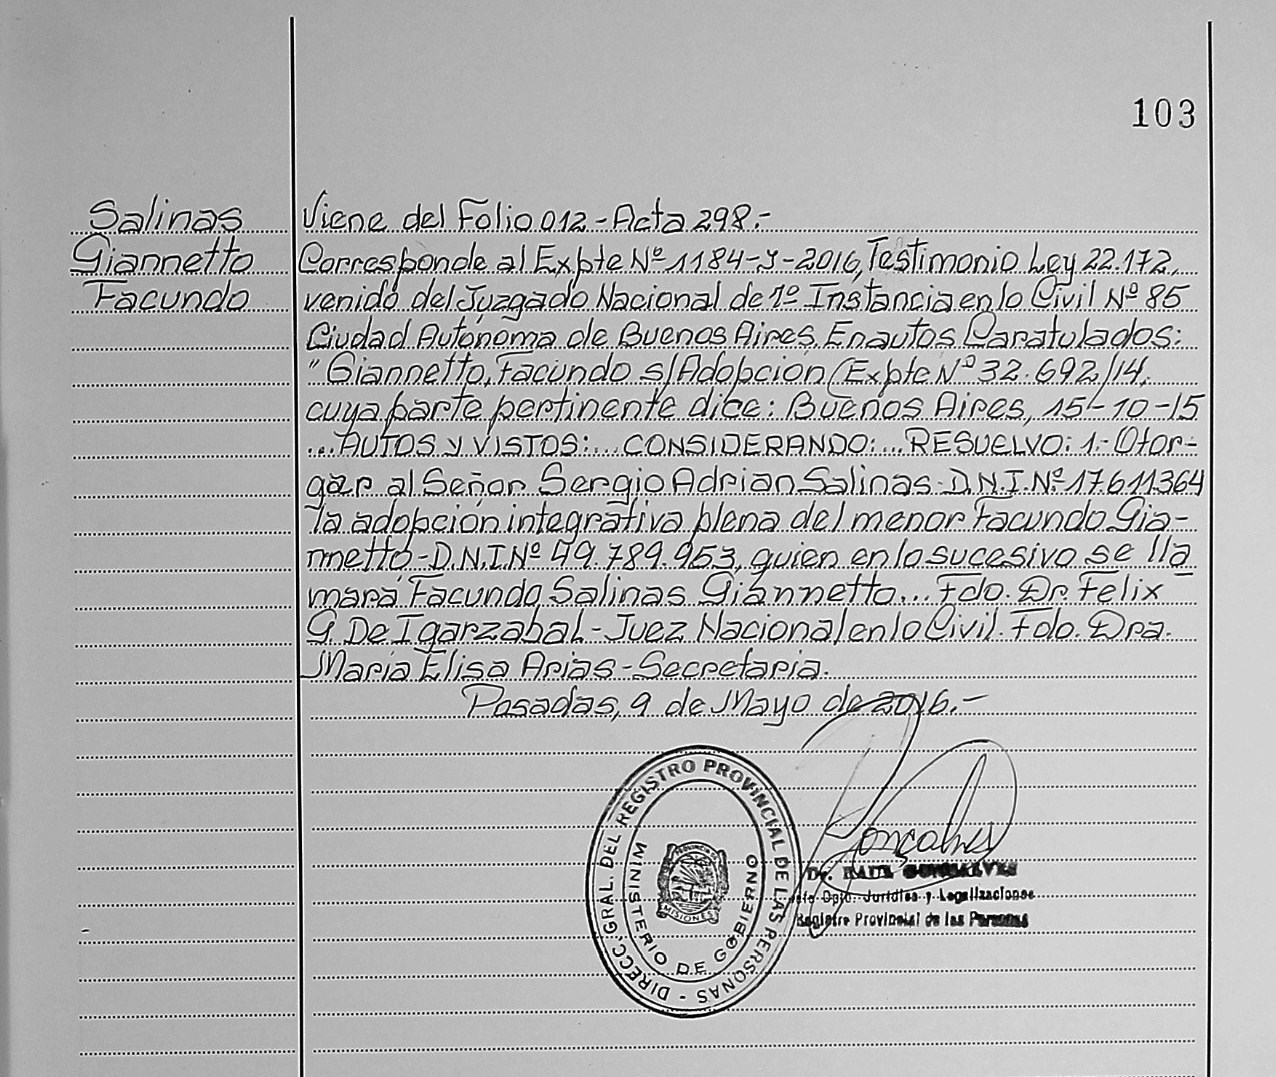 103
Salinas
Giannetto
Facundo
Viene del Folio 012 - Acta 298.-
Corresponde al Expte Nº 1184-J-2016, Testimonio Ley 22.172,
venido del Juzgado Nacional de 1º Instancia en lo Civil Nº 85
Ciudad Autónoma de Buenos Aires. En autos Caratulados:
"Giannetto, Facundo s/Adopción (Expte Nº 32.692/14,
cuya parte pertinente dice: Buenos Aires, 15-10-15
...AUTOS y VISTOS:...CONSIDERANDO:...RESUELVO: 1.- Otor-
gar al Señor Sergio Adrian Salinas D.N.I. Nº 17.611364
la adopción integrativa plena del menor Facundo Gia-
nnetto - D.N.I Nº 49.789.953, quien en lo sucesivo se lla
mará Facundo Salinas Giannetto... Fdo. Dr. Felix
G. De Igarzabal - Juez Nacional en lo Civil. Fdo. Dra.
María Elisa Arias - Secretaria.
Posadas, 9 de Mayo de 2016.-
DIRECC. GRAL. DEL REGISTRO PROVINCIAL DE LAS PERSONAS -
MINISTERIO DE GOBIERNO
MISIONES
Dr. RAUL GONSALVES
Jefe Dpto. Jurídica y Legalizaciones
Registro Provincial de las Personas